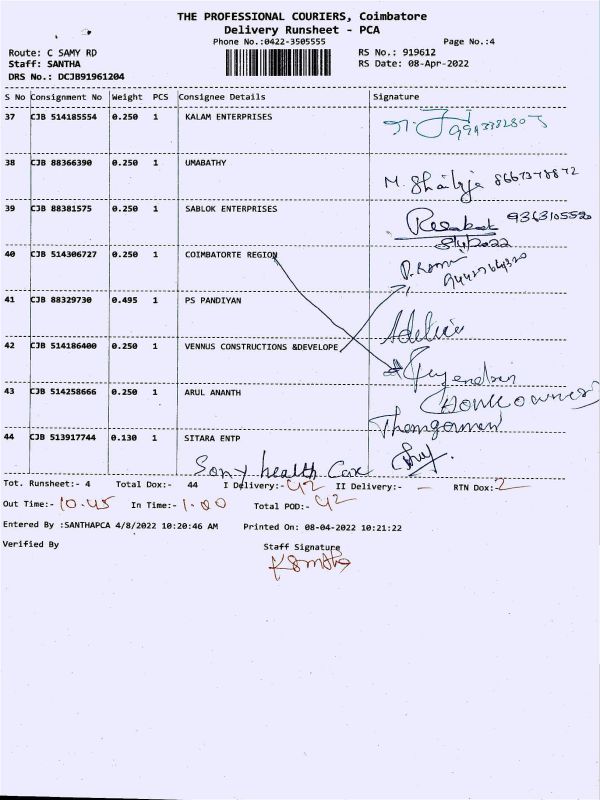 THE PROFESSIONAL COURIERS, Coimbatore
Delivery Runsheet - PCA
Phone No.:0422-3505555 Page No.:4
Route: C SAMY RD RS No.: 919612
Staff: SANTHA RS Date: 08-Apr-2022
DRS No.: DCJB91961204
S No Consignment No Weight PCS Consignee Details Signature
37 CJB 514185554 0.250 1 KALAM ENTERPRISES
38 CJB 88366390 0.250 1 UMABATHY
M.
39 CJB 88381575 0.250 1 SABLOK ENTERPRISES 9363105520
8/4/2022
40 CJB 514306727 0.250 1 COIMBATORTE REGION
41 CJB 88329730 0.495 1 PS PANDIYAN
42 CJB 514186400 0.250 1 VENNUS CONSTRUCTIONS &DEVELOPE
43 CJB 514258666 0.250 1 ARUL ANANTH
44 CJB 513917744 0.130 1 SITARA ENTP
Sony health Care
Tot. Runsheet:- 4 Total Dox:- 44 I Delivery:- 42 II Delivery:- - RTN Dox:- 2
Out Time:- 10.45 In Time:- 1.00 Total POD:- 42
Entered By :SANTHAPCA 4/8/2022 10:20:46 AM Printed On: 08-04-2022 10:21:22
Verified By Staff Signature